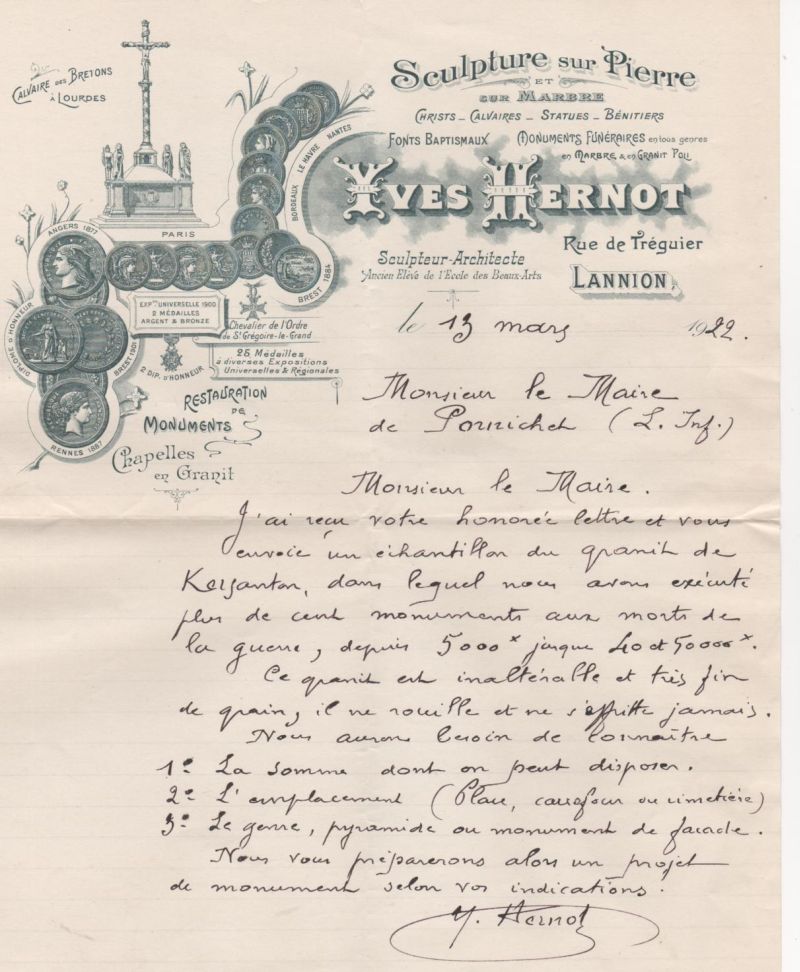 Du
Calvaire des Bretons
à Lourdes
Sculpture sur Pierre
ET
sur Marbre
Christs - Calvaires - Statues - Bénitiers
Fonts Baptismaux Monuments Funéraires en tous genres
en Marbre & en Granit Poli
Yves Hernot
Sculpteur-Architecte
Ancien Elève de l'Ecole des Beaux-Arts
Rue de Tréguier
Lannion,
BORDEAUX LE HAVRE NANTES
PARIS
ANGERS 1877
BREST 1884
DIPLOME D'HONNEUR
BREST 1901
RENNES 1887
EXPon UNIVERSELLE 1900
2 MÉDAILLES
ARGENT & BRONZE
2 DIP. D'HONNEUR
Chevalier de l'Ordre
de St Grégoire-le-Grand
25 Médailles
à diverses Expositions
Universelles & Régionales
Restauration
de
Monuments
Chapelles
en Granit
le 13 mars 1922.
Monsieur le Maire
de Pornichet (L. Inf.)
Monsieur le Maire.
J'ai reçu votre honorée lettre et vous
envoie un échantillon du granit de
Kersanton, dans lequel nous avons exécuté
plus de cent monuments aux morts de
la guerre, depuis 5000 x jusque 40 et 50000 x.
Ce granit est inaltérable et très fin
de grain, il ne rouille et ne s'effritte jamais.
Nous aurons besoin de connaître
1º La somme dont on peut disposer.
2º L'emplacement (Place, carrefour ou cimetière)
3º Le genre, pyramide ou monument de façade.
Nous vous préparerons alors un projet
de monument selon vos indications.
Y. Hernot